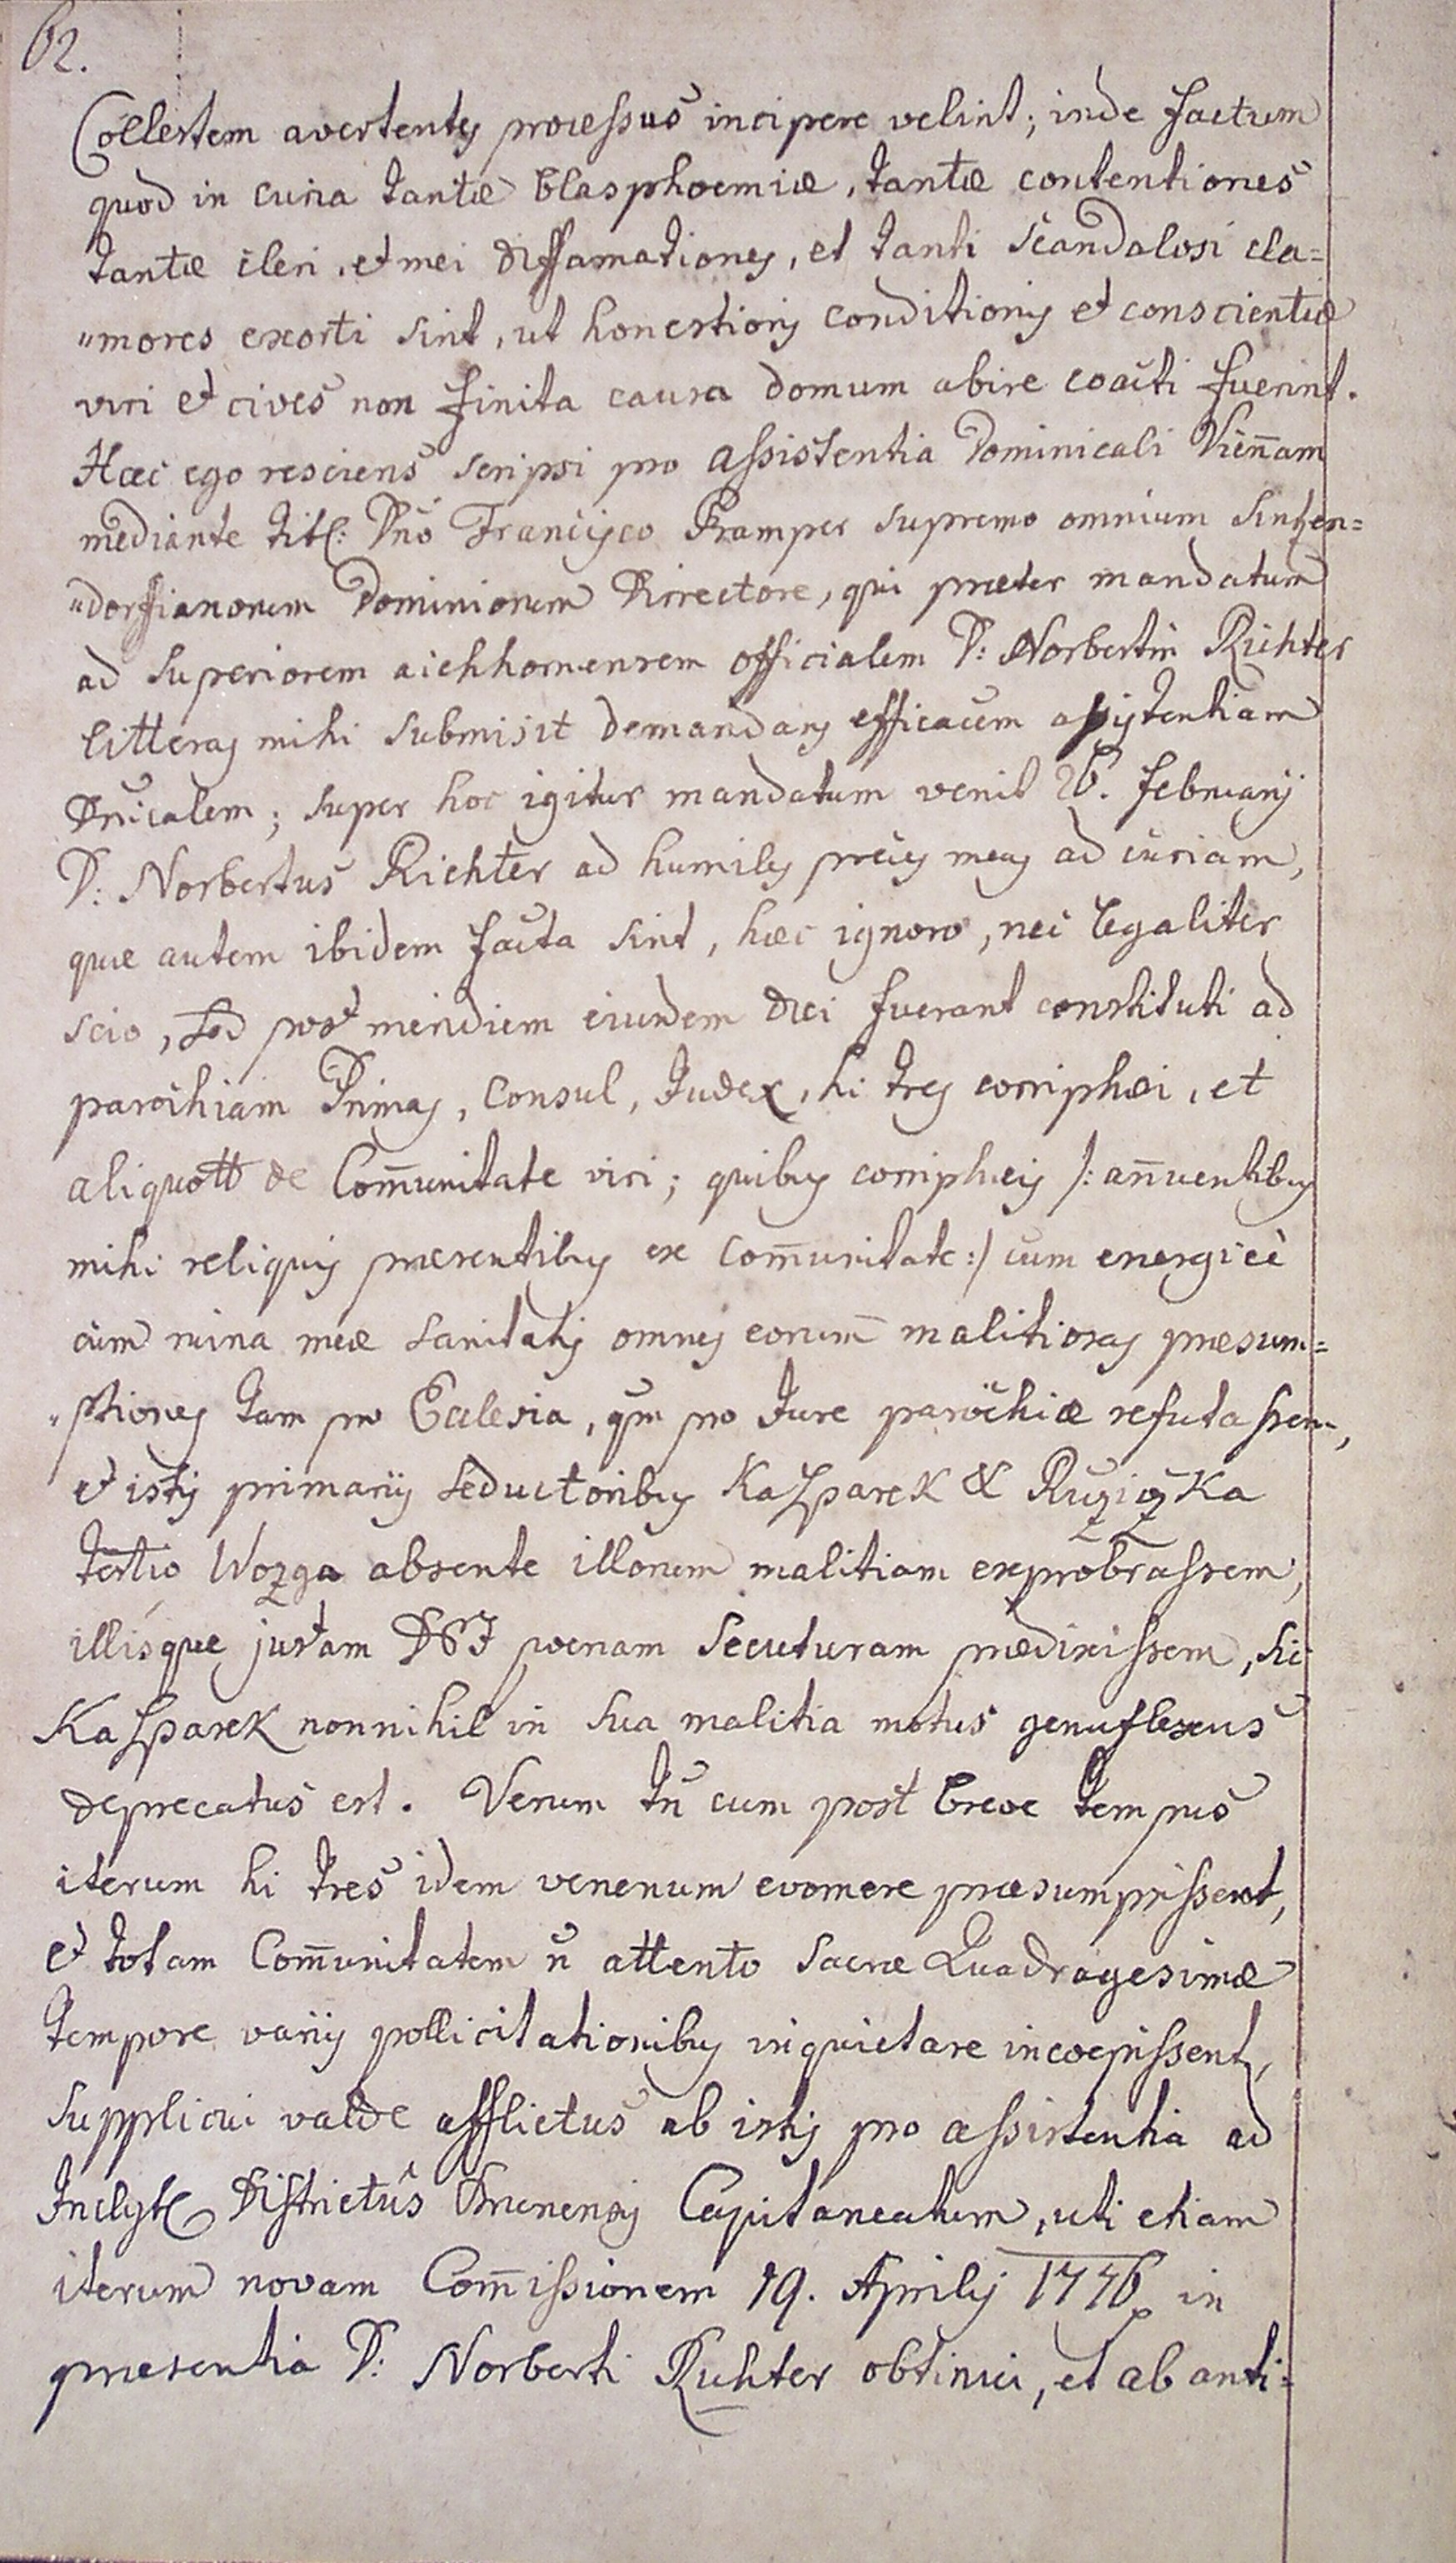 62.
Collestem avertentes processus incipere velint; inde factum
quod in curia tantæ blasphoemiæ, tantæ contentiones
tantæ cleri, et mei diffamationes, et tanti scandalosi cla=
"mores exorti sint, ut honestioris conditionis et conscientiæ
viri et cives non finita causa domum abire coacti fuerint.
Hæc ego resciens scripsi pro assistentia Dominicali Vien̄am
mediante titl: Dn̄o Francisco Pramper supremo omnium Sinzen=
"dorffianorum Dominiorum Directore, qui præter mandatum
ad superiorem aichhornensem officialem D: Norbertum Richter
litteras mihi submisit demandans efficacem assistentiam
Dn̄icalem; super hoc igitur mandatum venit 26. februarij
D: Norbertus Richter ad humiles preces meas ad curiam,
quæ autem ibidem facta sint, hæc ignoro, nec legaliter
scio, sed post meridiem eiusdem diei fuerant constituti ad
parochiam Primas, Consul, Judex, hi tres corriphæi, et
aliquott de Com̄unitate viri; quibus corriphæis /: an̄uentibus
mihi reliquis præsentibus ex Com̄unitate :/ cum energicè
cum ruina meæ sanitatis omnes eorum malitiosas præsum=
"ptiones tam pro Ecclesia, qm̄ pro Jure parochiæ refutassem,
et istis primariis seductoribus Kasparek & Ružiczka
tertio Wozga absente illorum malitiam exprobrassem,
illisque justam DEI poenam secuturam prædixissem, hic
Kasparek nonnihil in sua malitia motus genuflexus
deprecatus est. Verum tn̄ cum post breve tempus
iterum hi tres idem venenum evomere præsumpsissent,
et totam Com̄unitatem n̄ attento sacræ Quadragesimæ
tempore variis pollicitationibus inquietare incoepissent,
supplicui valde afflictus ab istis pro assistentia ad
Inclyt Districtûs Brunensis Capitaneatum, uti etiam
iterum novam Com̄issionem 19. Aprilis 1776 in
præsentia D: Norberti Richter obtinui, et ab anti=